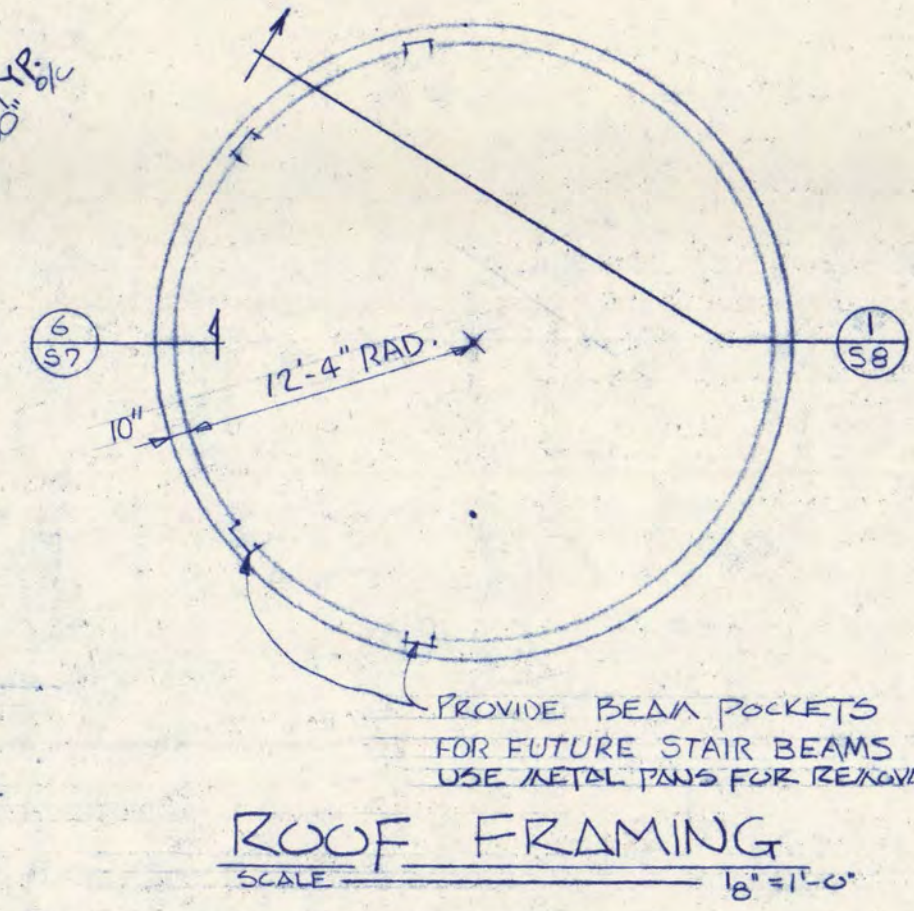 YP.
0" o/c
6
S7
1
S8
12'-4" RAD.
10"
PROVIDE BEAM POCKETS
FOR FUTURE STAIR BEAMS
USE METAL PANS FOR REMOVA
ROOF FRAMING
SCALE 1/8" = 1'-0"